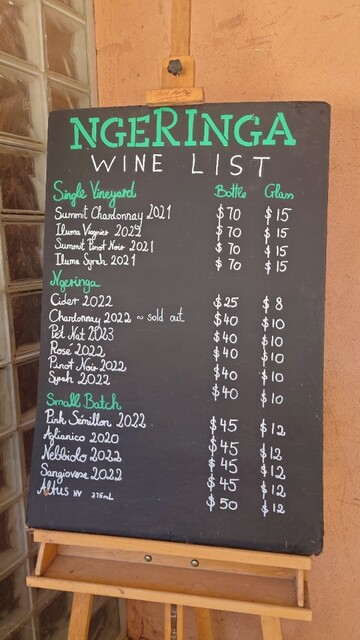 NGERINGA
WINE LIST
Single Vineyard Bottle Glass
Summit Chardonnay 2021 $70 $15
Iluma Viognier 2021 $70 $15
Summit Pinot Noir 2021 $70 $15
Iluma Syrah 2021 $70 $15
Ngeringa
Cider 2022 $25 $8
Chardonnay 2022 ~ sold out $40 $10
Pet Nat 2023 $40 $10
Rosé 2022 $40 $10
Pinot Noir 2022 $40 $10
Syrah 2022 $40 $10
Small Batch
Pink Sémillon 2022 $45 $12
Aglianico 2020 $45 $12
Nebbiolo 2022 $45 $12
Sangiovese 2022 $45 $12
Altus NV 375mL $50 $12